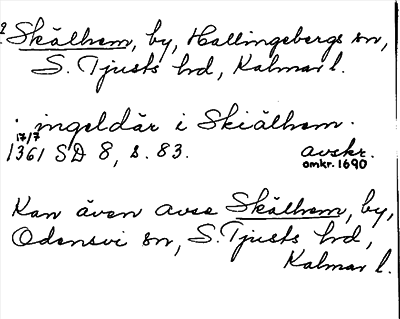 ? Skälhem, by, Hallingebergs sn,
S. Tjusts hd, Kalmar l.
. ingeldär i Skiälhem.
17/7
1361 SD 8, s. 83. avskr.
omkr. 1690
Kan även avse Skälhem, by,
Odensvi sn, S. Tjusts hd,
Kalmar l.